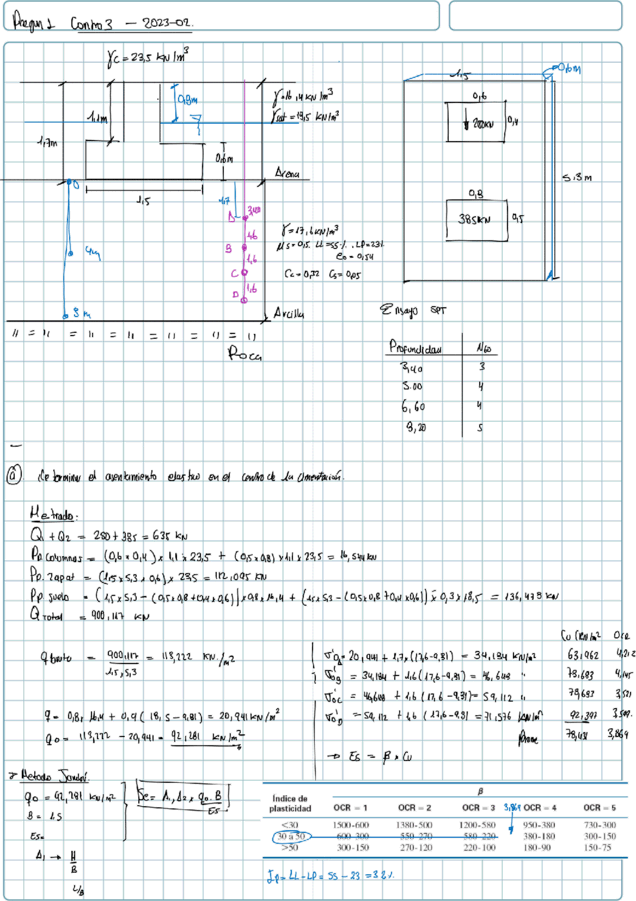 Pregun 1 Contro 3 — 2023-02.
γc = 23,5 kN/m³
0,8m
γ=16,4 kN/m³
γsat = 18,5 kN/m³
1,1m
1,7m
0,6m
Arena
1,5
0
4m
8 m
1,7
A 3,40
1,6
B
1,6
C
1,6
D
γ=17,6 kN/m³
μs=0,5. LL=55%. LP=23%
e₀=0,54
Cc=0,72 Cs=0,05
Arcilla
Roca
1,5
0,6m
0,6
0,4
0,8
385kN
0,5
5.3m
Ensayo SPT
Profundidad N60
3,40 3
5.00 4
6,60 4
8,20 5
a Determinar el asentamiento elastico en el centro de la cimentación.
Metrado:
Q1 + Q2 = 250 + 385 = 635 kN
Pp. columnas = (0,6 x 0,4) x 1,1 x 23,5 + (0,5 x 0,8) x 1,1 x 23,5 = 16,544 kN
Pp. zapat = (1,5 x 5,3 x 0,6) x 23,5 = 112,095 kN
Pp. suelo = (1,5 x 5,3 - (0,5 x 0,8 + 0,4 x 0,6)) x 0,8 x 16,4 + (1,5 x 5,3 - (0,5 x 0,8 + 0,4 x 0,6)) x 0,3 x 18,5 = 136,478 kN
Q Total = 900,117 kN
q bruto = 900,117 / 1,5 x 5,3 = 113,222 kN/m²
q = 0,8 x 16,4 + 0,9 (18,5 - 9,81) = 20,941 kN/m²
q₀ = 113,222 - 20,941 = 92,281 kN/m²
Cu (kN/m² OCR
σ'oA = 20,941 + 1,7 x (17,6-9,81) = 34,184 kN/m² 63,962 4,212
σ'oB = 34,184 + 1,6 (17,6-9,81) = 46,648 " 78,683 4,145
σ'oC = 46,648 + 1,6 (17,6-9,81) = 59,112 " 78,683 3,511
σ'oD = 59,112 + 1,6 (17,6-9,81) = 71,576 kN/m² 92,397
Prom 78,431 3,869
→ Es = β x Cu
→ Metodo Janbú.
q₀ = 92,281 kN/m²
B = 1.5
Es=
A1 → H/B
L/B
Se = A1 A2 x q₀ . B / Es
β
Índice de plasticidad OCR = 1 OCR = 2 OCR = 3 3,869 OCR = 4 OCR = 5
<30 1500-600 1380-500 1200-580 950-380 730-300
30 a 50 600-300 550-270 580-220 380-180 300-150
>50 300-150 270-120 220-100 180-90 150-75
Ip = LL - LP = 55 - 23 = 32%